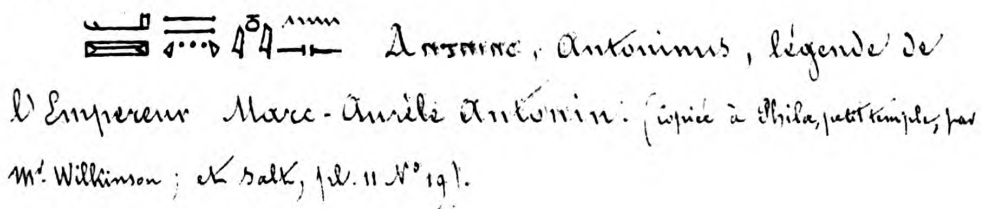 Antoninus, légende de
l'Empereur Marc-Aurèle Antonin: (copiée à Philæ, petit temple, par
Mr. Wilkinson ; et Salt, pl. 11 N° 19).